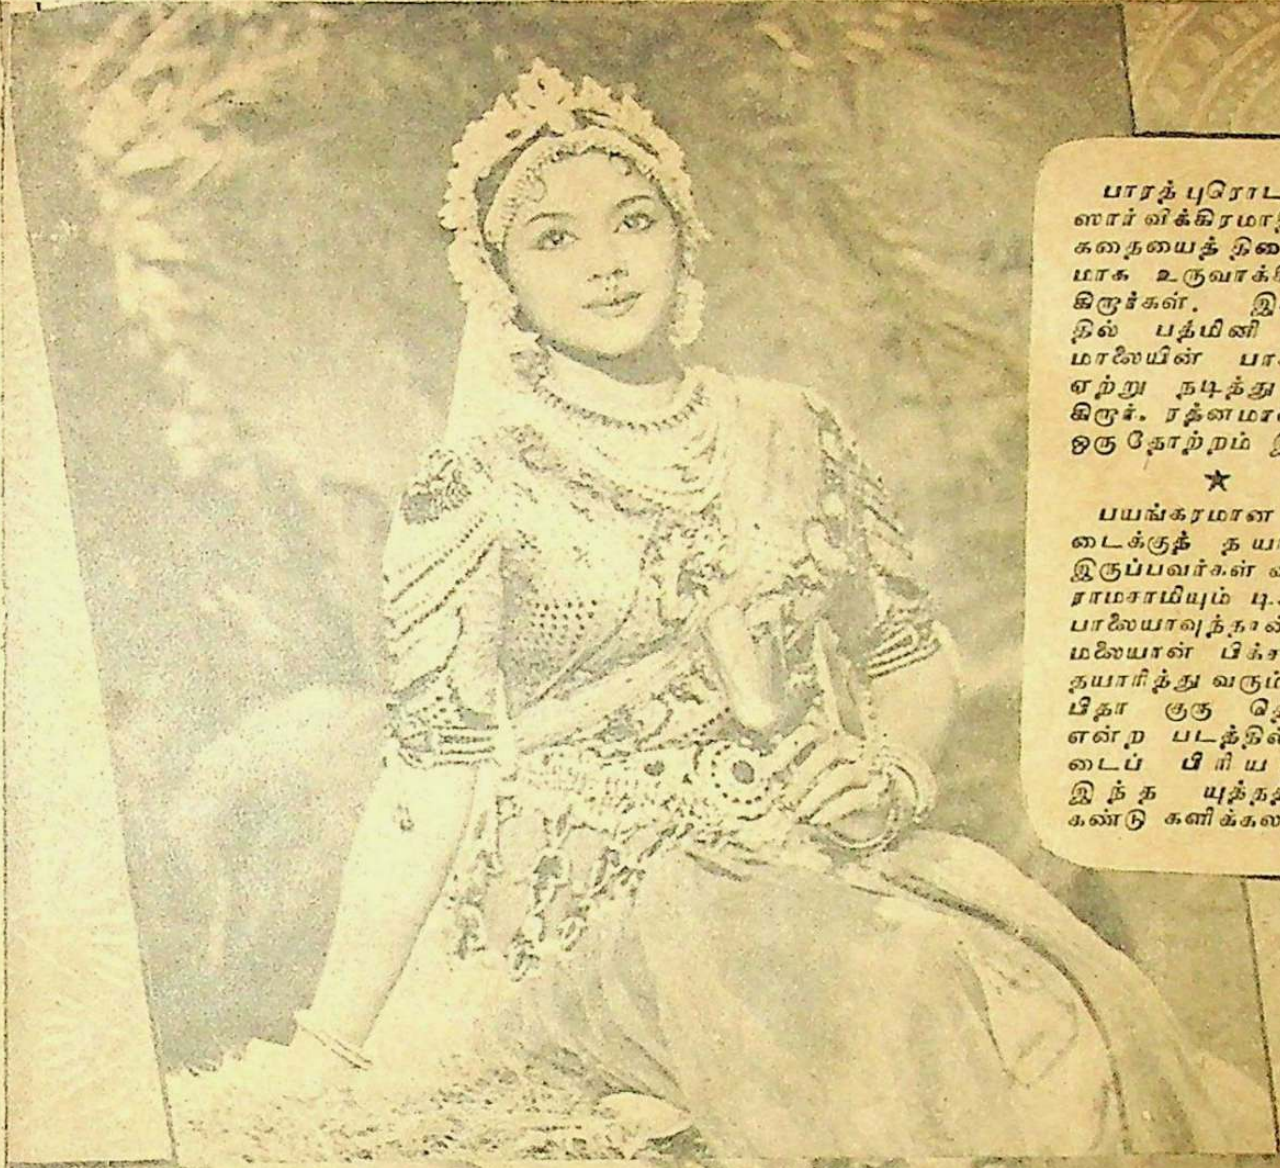 பாரத் புரொட
ஸார் விக்கிரமாத
கதையைத் திரை
மாக உருவாக்க
கிறார்கள். இ
தில் பத்மினி
மாலையின் பா
ஏற்று நடித்து
கிறார். ரத்னமா
ஒரு தோற்றம் இ
★
பயங்கரமான
டைக்குத் தயா
இருப்பவர்கள்
ராமசாமியும் டி.
பாலையாவுந்தான்
மலையான் பிக்ச
தயாரித்து வரும்
பிதா குரு தெ
என்ற படத்தில்
டைப் பிரிய
இந்த யுத்தத
கண்டு களிக்கலா